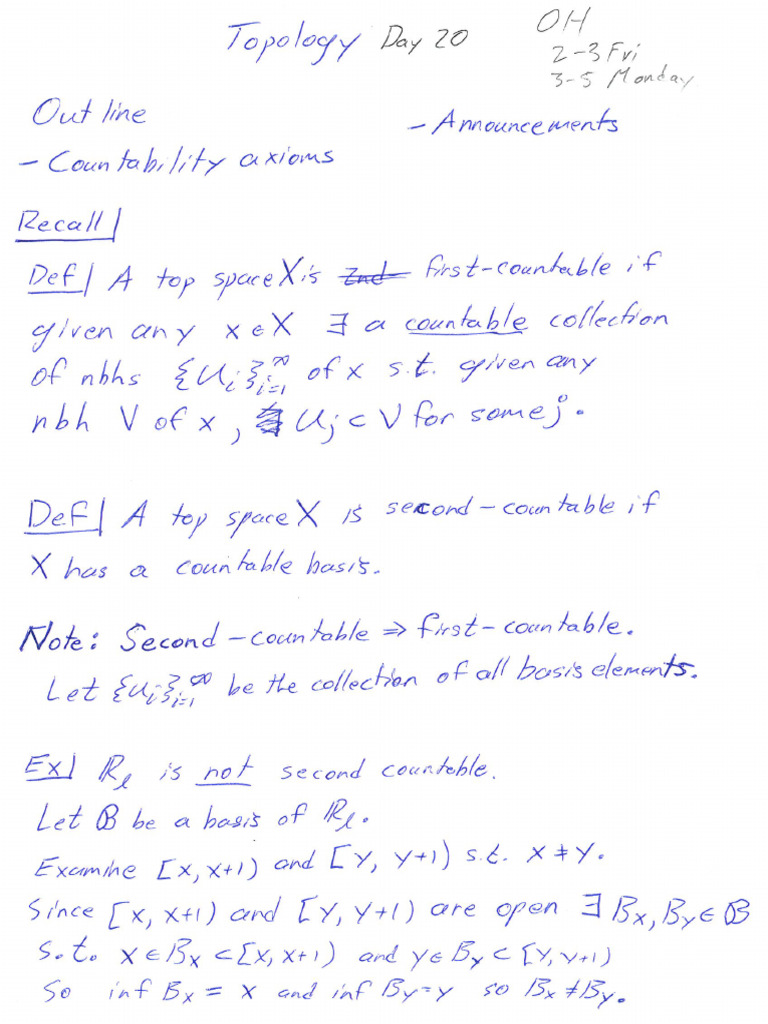 Topology Day 20
OH
2-3 Fri
3-5 Monday
Outline
- Announcements
- Countability axioms
Recall
Def| A top space X is 2nd first-countable if
given any x ∈ X ∃ a countable collection
of nbhs {Ui}∞i=1 of x s.t. given any
nbh V of x, Uj ⊂ V for some j.
Def| A top space X is second-countable if
X has a countable basis.
Note: Second-countable ⇒ first-countable.
Let {Ui}∞i=1 be the collection of all basis elements.
Ex| ℝℓ is not second countable.
Let 𝔹 be a basis of ℝℓ.
Examine [x, x+1) and [y, y+1) s.t. x ≠ y.
Since [x, x+1) and [y, y+1) are open ∃ Bx, By ∈ 𝔹
s.t. x ∈ Bx ⊂ [x, x+1) and y ∈ By ⊂ [y, y+1)
So inf Bx = x and inf By = y so Bx ≠ By.